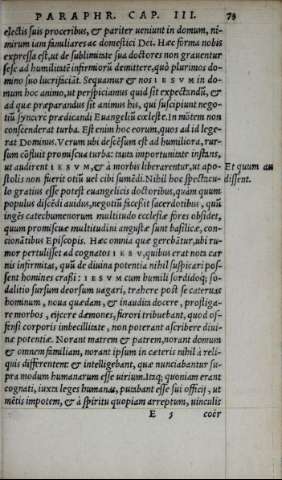 PARAPHR. CAP. III. 73
electis suis proceribus, & pariter ueniunt in domum, ni-
mirum iam familiares ac domestici Dei. Hæc forma nobis
expressa est, ut de sublimitate sua doctores non grauentur
sese ad humilitatẽ infirmiorũ demittere, quò plurimos do-
mino suo lucrifaciãt. Sequamur & nos IESVM in do-
mum hoc animo, ut perspiciamus quid sit expectandũ, &
ad quæ præparandus sit animus his, qui suscipiunt nego-
tiũ syncere prædicandi Euangelij cœleste. In mõtem non
conscenderat turba. Est enim hoc eorum, quos ad id lege-
rat Dominus. Verum ubi descẽsum est ad humiliora, rur-
sum cõfluit promiscua turba: tum importunitate instans,
ut audirent IESVM, & à morbis liberarentur, ut apo-
stolis non fuerit otiũ uel cibi sumẽdi. Nihil hoc spectacu-
lo gratius esse potest euangelicis doctoribus, quàm quum
populus discẽdi auidus, negotiũ facessit sacerdotibus, quũ
ingẽs catechumenorum multitudo ecclesiæ fores obsidet,
quum promiscuæ multitudini angustæ sunt basilicæ, con-
cionãtibus Episcopis. Hæc omnia quæ gerebãtur, ubi ru-
mor pertulisset ad cognatos IESV, quibus erat nota car
nis infirmitas, quũ de diuina potentia nihil suspicari pos-
sent homines crassi: IESVM cum humili sordidoq; so-
dalitio sursum deorsum uagari, trahere post se cateruas
hominum, noua quædam, & inaudita docere, profliga-
re morbos, eijcere dæmones, furori tribuebant, quod of-
fensi corporis imbecillitate, non poterant ascribere diui-
næ potentiæ. Norant matrem & patrem, norant domum
& omnem familiam, norant ipsum in cæteris nihil à reli-
quis differentem: & intelligebant, quæ nunciabantur su-
pra modum humanarum esse uirium. Itaq; quoniam erant
cognati, iuxta leges humanas, putabant esse sui officij, ut
mẽtis impotem, & à spiritu quopiam arreptum, uinculis
E 5 coër
Et quum au
dissent.